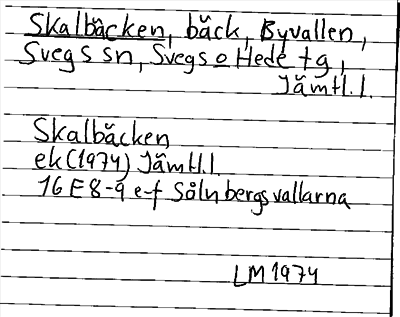 Skalbäcken, bäck, Byvallen,
Svegs sn, Svegs o Hede tg,
Jämtl.l.
Skalbäcken
ek (1974) Jämtl.l.
16 E 8-9 e-f Sålnbergsvallarna
LM 1974